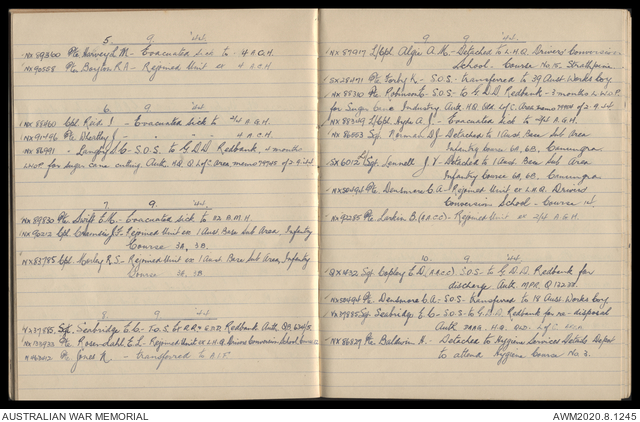 5. 9 '44.
NX59360 Pte Harvey K.M. - Evacuated sick to 4 A.C.H.
NX90558 Pte Boylon R.A - Rejoined Unit ex 4 A.C.H
6. 9 '44.
NX88460 Cpl Reid. J - Evacuated sick to 2/4 A.G.H
NX91496 " J - " " " 4 A.C.H.
NX86991 " Langby D.C - S.O.S. to G.D.D Redbank, 2 months
LWOP for sugar cane cutting Auth. HQ. Q. L of C Area memo 79945 of 2-9-44
7 9 '44.
NX89830 Pte Swift E.M. - Evacuated sick to 22 B.M.H.
NX90212 Cpl J. Rejoined Unit ex 1 Aust. Base Sub Area, Infantry
Course 3A, 3B.
NX83785 Cpl. Corley R.S - Rejoined Unit ex 1 Aust. Base Sub Area, Infantry
Course 3A. 3B
8 9 '44
VX37885. Sgt. Seabridge E.C - T.O.S. Redbank Auth.
Pte. Rosendahl E.L - Rejoined Unit ex LHQ Drivers Conversion School
Pte Jones K. - transferred to A.I.F.
9 9 '44.
NX87917 L/Cpl Algie A.M. - Detached to L.H.Q. Drivers' Conversion
School. Course No.15. Strathpine
SX28471 Pte Forby K - S.O.S. transferred to 39 Aust. Works Coy.
NX88310 Pte Robinson C - S.O.S to G.D.D Redbank - 3 months L.W.O.P.
for Sugar Cane Industry Auth. H.Q. Qld. L of C. Area memo 79945 of 2-9-44
L/Cpl A. J - Evacuated sick to 2/4 A.G.H.
NX86553 Sgt Normal D.J. Detached to 1 Aust. Base Sub Area
Infantry Course 6A, 6B, Canungra
SX6012 L/Sgt. Lonnell J.V - Detached to 1 Aust. Base Sub Area
Infantry Course 6A, 6B, Canungra
NX50494 Pte Densmore C A - Rejoined Unit ex L.H.Q. Drivers
Conversion School - Course 14.
NX90285 Pte Larkin B. (AACC) - Rejoined Unit ex 2/4 A.G.H.
10. 9 '44.
QX1432 Sgt Copley E J. (AACC) S.O.S. to G.D.D. Redbank for
discharge Auth MPR. Q
NX50494 Pte Densmore C A. - S.O.S - transferred to 18 Aust. Works Coy
VX37885 Sgt Seabridge E. C - S.O.S - to G.D.D Redbank for re-disposal
Auth H.Q. QLD. L of C Area.
NX86827 Pte Baldwin H. - Detached to Hygiene Services Details Depot
to attend Hygiene Course No. 3.
AUSTRALIAN WAR MEMORIAL
AWM2020.8.1245